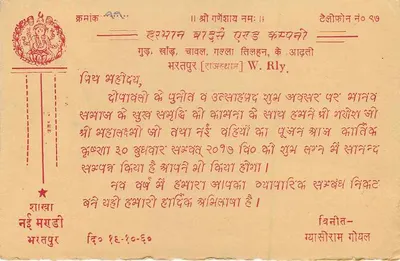 क्रमांक
॥ श्री गणेशाय नमः ॥
टेलीफोन नं० ९७
हरभान ब्रादर्स एण्ड कम्पनी
गुड़, खाँड़, चावल, गल्ला तिलहन, के आढ़ती
भरतपुर [राजस्थान] W. Rly.
प्रिय महोदय,
दीपावली के पुनीत व उत्साहप्रद शुभ अवसर पर मानव
समाज के सुख समृद्धि की कामना के साथ हमने श्री गणेश जी
श्री महालक्ष्मी जी तथा नई बहियों का पूजन आज कार्तिक
कृष्णा ३० बुधवार सम्वत् २०१७ वि० की शुभ लग्न में सानन्द
सम्पन्न किया है आपने भी किया होगा।
नव वर्ष में हमारा आपका व्यापारिक सम्बंध निकट
बने यही हमारी हार्दिक अभिलाषा है।
शाखा
नई मण्डी
भरतपुर
दि० १९-१०-६०
विनीत-
ग्यासीराम गोयल